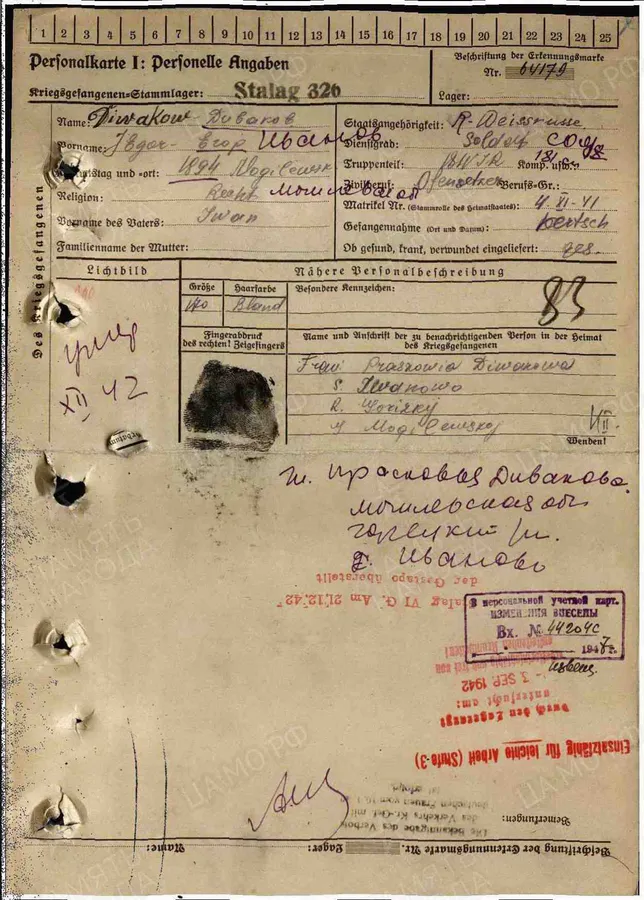 1 2 3 4 5 6 7 8 9 10 11 12 13 14 15 16 17 18 19 20 21 22 23 24 25
Personalkarte I: Personelle Angaben
Kriegsgefangenen-Stammlager: Stalag 326
Beschriftung der Erkennungsmarke
Nr. 64179
Lager:
Des Kriegsgefangenen
Name: Diwakow - Диваков
Vorname: Egor - Егор Иванов
Geburtstag und -ort: 1894 Mogilewsk
Могилевская
Religion:
Vorname des Vaters: Iwan
Familienname der Mutter:
Staatsangehörigkeit: R. Weissrusse
Dienstgrad: Soldat
Truppenteil: Komp. usw.:
Zivilberuf: Berufs-Gr.:
Matrikel Nr. (Stammrolle des Heimatstaates): 4. XI. 41
Gefangennahme (Ort und Datum): Kertsch
Ob gesund, krank, verwundet eingeliefert: ges.
Lichtbild
умер
XII 42
Nähere Personalbeschreibung
Größe Haarfarbe Besondere Kennzeichen:
170 Blond
83
Fingerabdruck
des rechten! Zeigefingers
Name und Anschrift der zu benachrichtigenden Person in der Heimat
des Kriegsgefangenen
Frau Praskowia Diwakowa
S. Iwanowo
R. Gorizky
Mogilewsky
Wenden!
ж. Прасковья Дивакова
Могилевская об
Горецкий р.
д. Иваново
der Gestapo überstellt
Stalag VI G. Am 21.12.42
В персональной учетной карт.
ИЗМЕНЕНИЯ ВНЕСЕНЫ
Вх. № 44204с
1947 г.
- 3. SEP. 1942
untersucht am:
durch den Lagerarzt
Einsatzfähig für leichte Arbeit (Stufe-3)
Die Bekanntgabe des Verbots
des Verkehrs Kr.-Gef. mit
deutschen Frauen vom
ist erfolgt.
Bemerkungen:
Beschriftung der Erkennungsmarke Nr. Lager: Name: